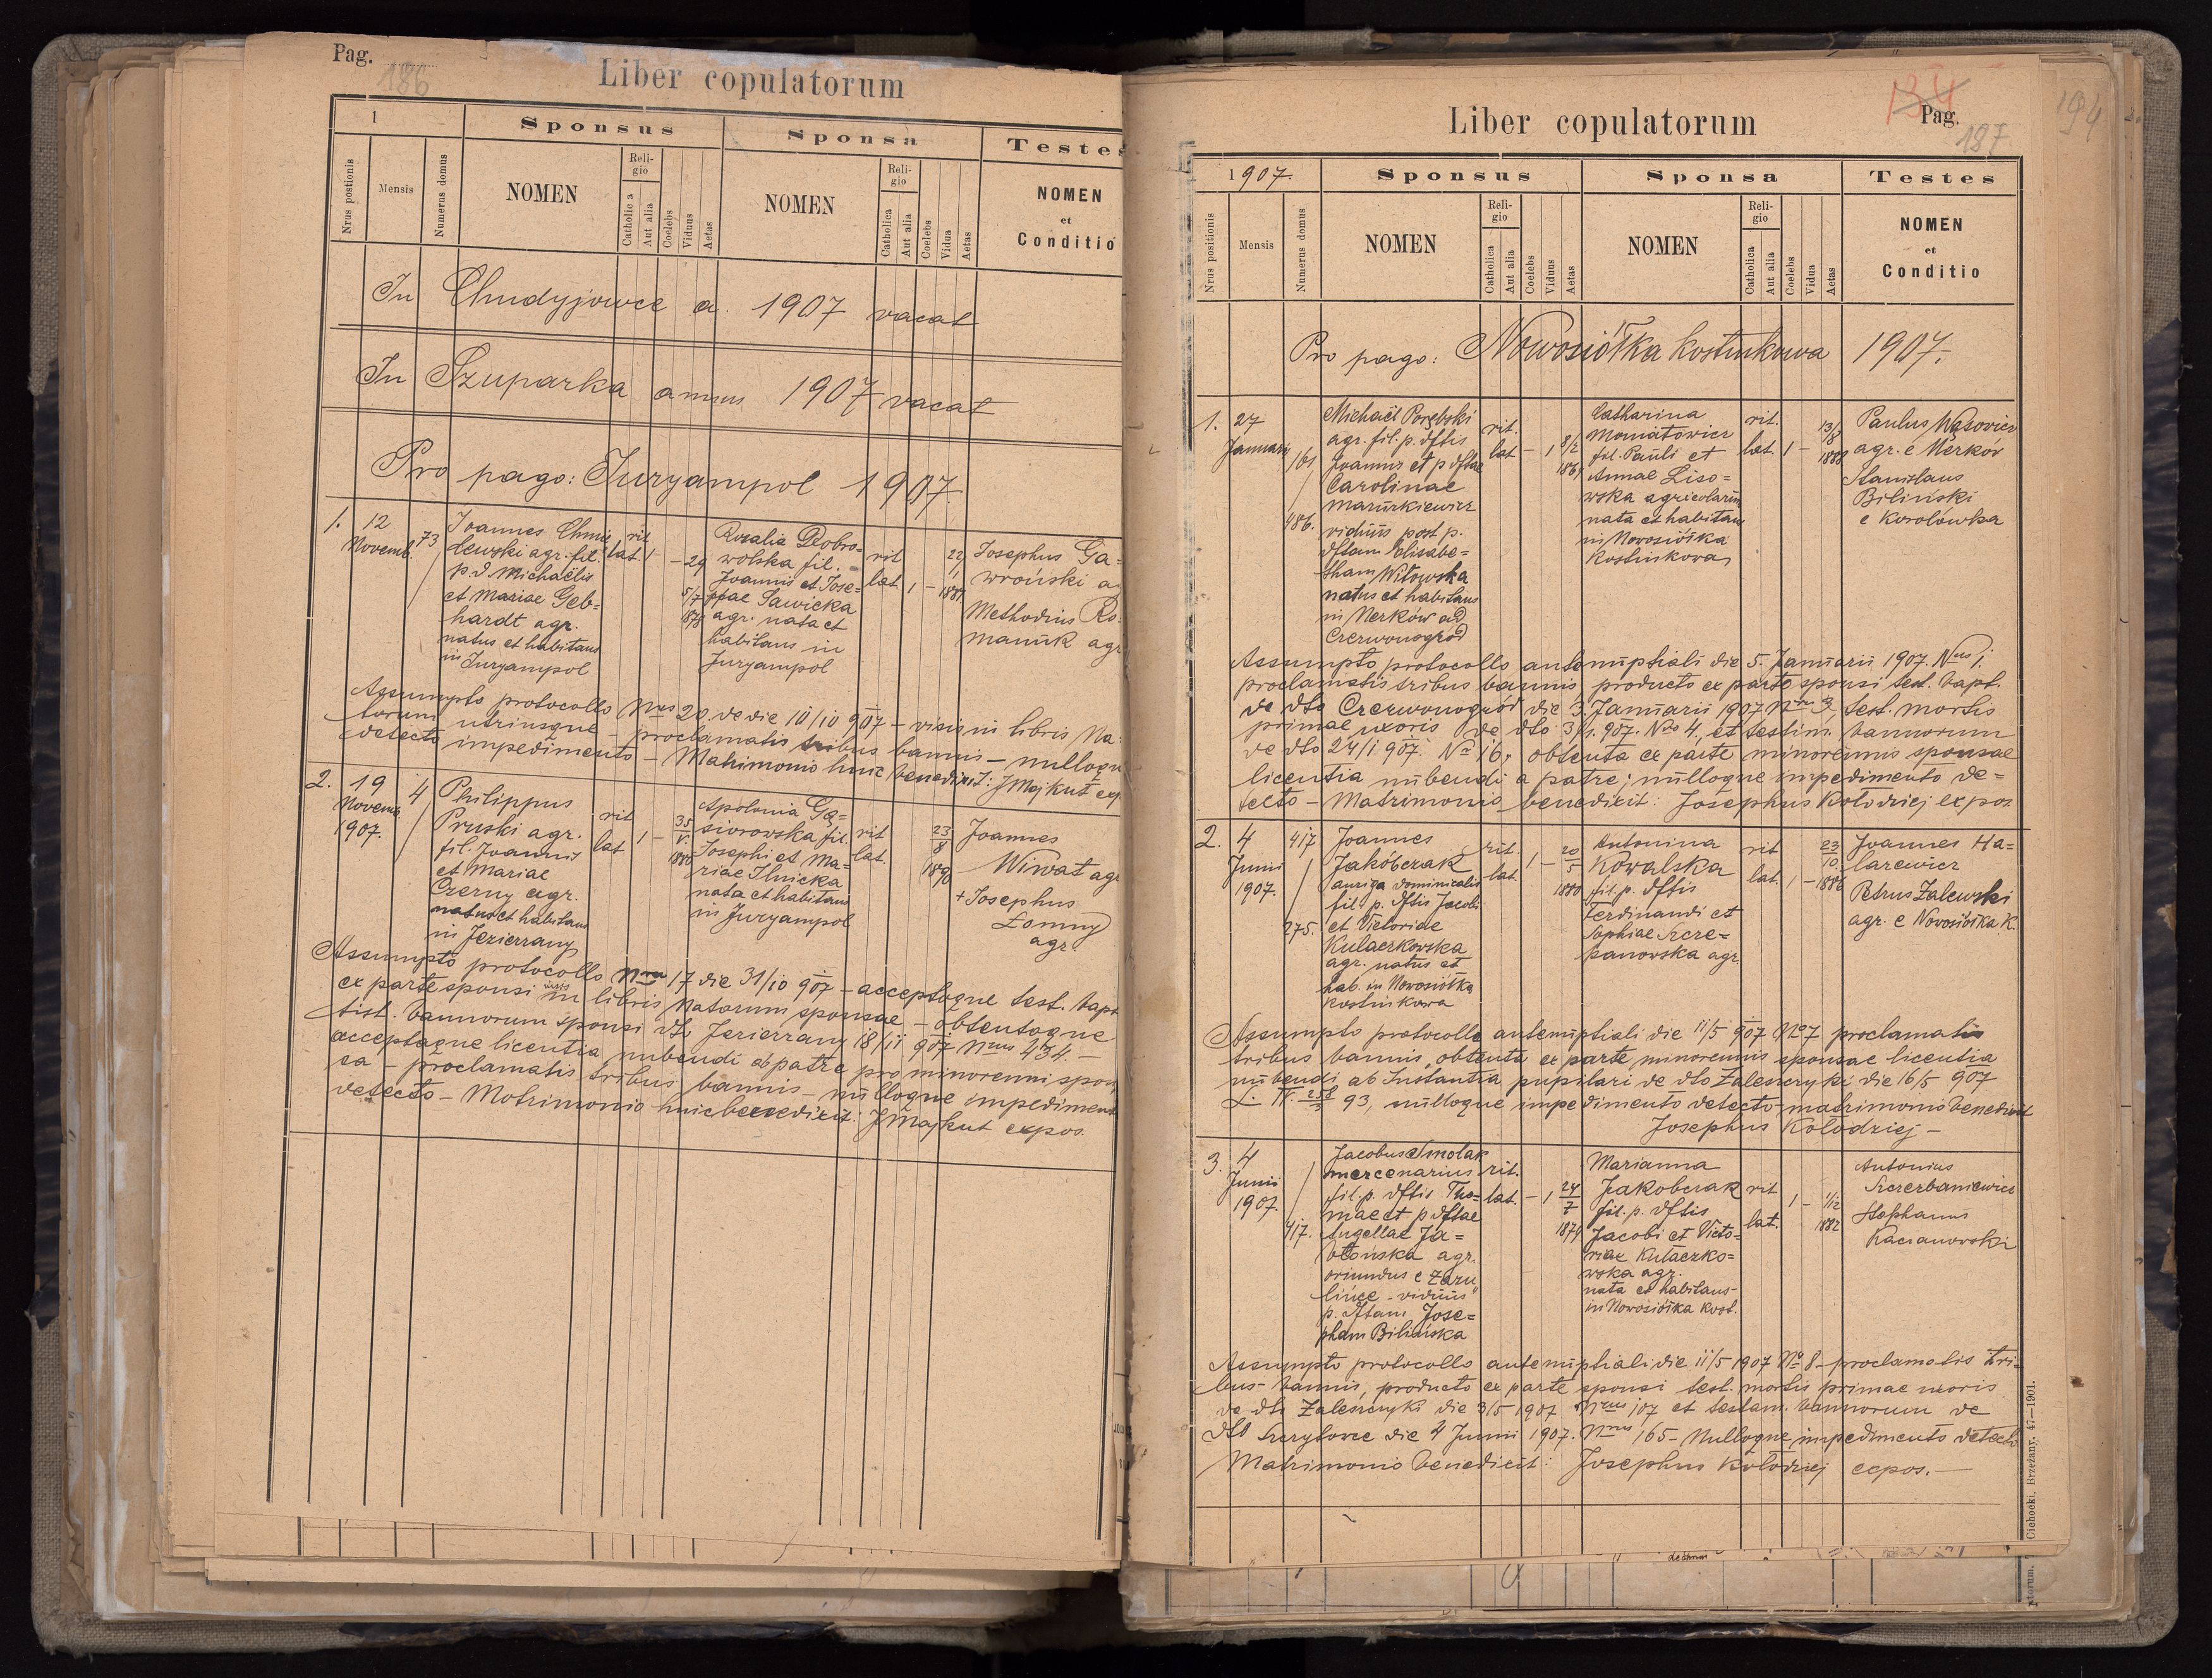 Pag.
186
Liber copulatorum
1
Sponsus
Sponsa
Testes
Nrus postionis
Mensis
Numerus domus
NOMEN
Religio
Catholica
Aut alia
Coelebs
Viduus
Aetas
NOMEN
Religio
Catholica
Aut alia
Coelebs
Vidua
Aetas
NOMEN
et
Conditio
In Chudyjowce a. 1907 vacat
In Szuparka annus 1907 vacat
Pro pago: Juryampol 1907.
1.
12
Novemb.
73
Joannes Chmie
lewski agr. fil.
p. d. Michaëlis
et Mariae Geb=
hardt agr.
natus et habitans
in Juryampol
rit
lat
1
-
29
5/7
878
Rozalia Dobro=
wolska fil.
Joannis et Jose=
phae Sawicka
agr. nata et
habitans in
Juryampol
rit
lat.
1
-
Josephus Ga=
wroński
Methodius Ro
manuk agr
Assumpto protocollo Nrus 20 de die 10/10 907 - visis in libris Na=
torum utriusque - proclamatis tribus bannis - nulloqu
detecto impedimento - Matrimonio huic benedixit: J Majkut exp
2.
19
Novemb.
1907.
4
Philippus
Pruski agr.
fil. Joannis
et Mariae
Czerny agr.
natus et habitans
in Jezierzany
rit
lat
1
-
Apolonia Gą=
siorowska fil.
Josephi et Ma=
riae Ilnicka
nata et habitans
in Juryampol
rit
lat.
23
8
1890
Joannes
Wiwat agr
+ Josephus
Łomny
agr.
Assumpto protocollo Nrus 17 die 31/10 907 - acceptoque test. bapt
ex parte sponsi visis in libris Natorum sponsae - obtentoque
tist. bannorum sponsi dto Jezierzany 18/11 907 Nrus 434. -
acceptaque licentia nubendi ab patre pro minorenni spon
sa - proclamatis tribus bannis - nulloque impediment
detecto - Matrimonio huic benedixit: J Majkut expos.
134
Pag.
187
194
Liber copulatorum
1907.
Sponsus
Sponsa
Testes
Nrus positionis
Mensis
Numerus domus
NOMEN
Religio
Catholica
Aut alia
Coelebs
Viduus
Aetas
NOMEN
Religio
Catholica
Aut alia
Coelebs
Vidua
Aetas
NOMEN
et
Conditio
Pro pago: Nowosiółka kostiukowa 1907.
1.
27
Januarii
161
486.
Michaël Porębski
agr. fil. p. dftis
Joannis et p dftae
Carolinae
Mazurkiewicz
viduus post p.
dftam Elisabe=
tham Witowska
natus et habitans
in Nerków ad
Czerwonogród
rit.
lat
-
1
8/2
Catharina
Moniatowicz
fil. Pauli et
Annae Liso=
wska agricolarum
nata et habitans
in Nowosiółka
Kostiukowa
rit.
lat.
1
-
Paulus Wąsowicz
agr. e Nerków
Stanislaus
Biliński
e Korolówka
Assumpto protocollo antenuptiali die 5. Januarii 1907. Nus 1.
proclamatis tribus bannis, producto ex parte sponsi test. bapt.
de dto Czerwonogród die 3 Januarii 1907 Nro 3, test. mortis
primae uxoris de dto 3/1. 907. Nro 4., et testim. bannorum
de dto 24/1 907. No 10, obtenta ex parte minorennis sponsae
licentia nubendi a patre; nulloque impedimento de=
tecto - Matrimonio benedixit: Josephus Kołodziej expos
2.
4
Junii
1907.
417
275.
Joannes
Jakóbczak
auriga dominicalis
fil. p. dftis Jacobi
et Victoriae
Kulaczkowska
agr. natus et
hab. in Nowosiółka
Kostiukowa
rit.
lat.
1
-
20
5
1880
Antonina
Kowalska
fil. p. dftis
Ferdinandi et
Sophiae Szcze=
panowska agr.
rit
lat.
1
-
23
10.
1886
Joannes Ha=
larewicz
Petrus Zalewski
agr. e Nowosiółka K.
Assumpto protocollo antenuptiali die 11/5 907 No 7 proclamatis
tribus bannis, obtenta ex parte minorennis sponsae licentia
nubendi ab Instantia pupilari de dto Zaleszczyki die 16/5 907
L. IV. 258/3 93, nulloque impedimento detecto - matrimonio benedixit
Josephus Kołodziej -
3.
4
Junii
1907.
417.
Jacobus Smolak
mercenarius
fil. p. dftis Tho=
mae et p dftae
Angellae Ja=
błonska agr.
oriundus e Zaru
lińce - viduus
p. dftam Jose=
pham Bilińska
rit.
lat.
-
1
24
7
1879
Marianna
Jakobczak
fil. p. dftis
Jacobi et Victo=
riae Kulaczko=
wska agr.
nata et habitans
in Nowosiółka Kost.
rit
lat.
1
-
1/12
1882
Antonius
Szczerbaniewicz
Stephanus
Kaczanowski
Assumpto protocollo antenuptiali die 11/5 1907 No 8 - proclamatis tri=
bus bannis, producto ex parte sponsi test. mortis primae uxoris
de dto Zaleszczyki die 3/5 1907 Nrus 107 et testam. bannorum de
dto Szczytowce die 4 Junii 1907. Nrus 165 - Nulloque impedimento detecto
Matrimonio benedixit: Josephus Kołodziej expos. -
Cichocki, Brzeżany, 47—1901.